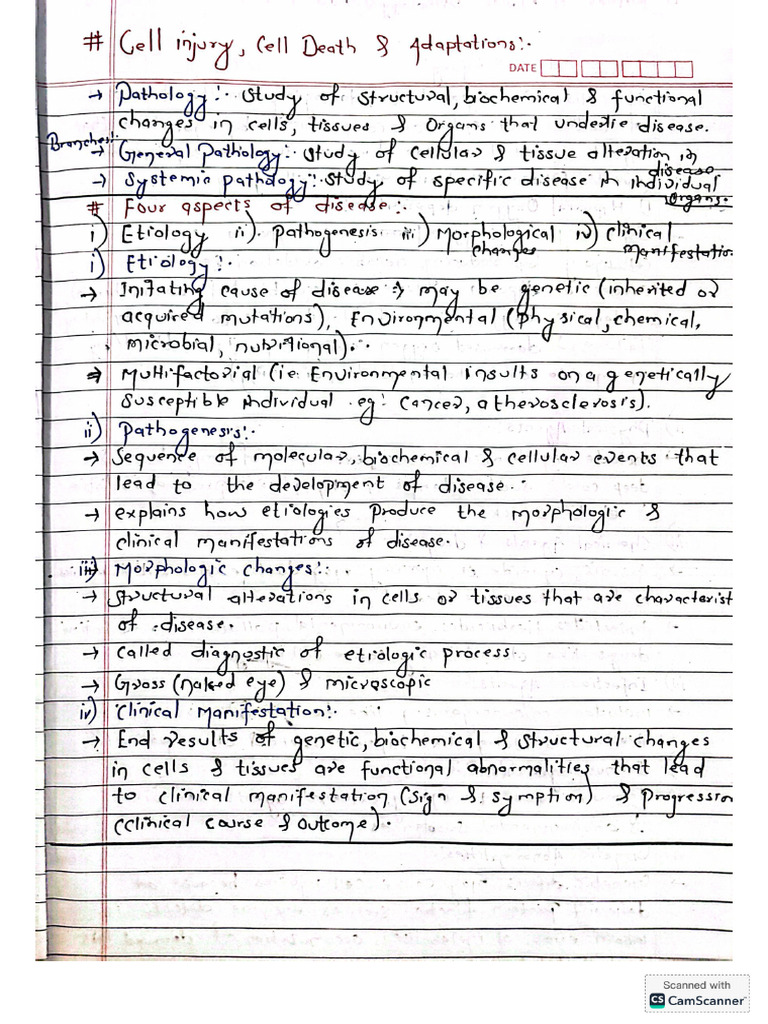 # Cell injury, Cell Death & Adaptations:-
DATE
→ Pathology:- Study of structural, biochemical & functional
changes in cells, tissues & Organs that underlie disease.
Branches:-
→ General Pathology:- Study of cellular & tissue alteration in
disease
→ Systemic pathology:- Study of specific disease in individual
Organs.
# Four aspects of disease:-
i) Etiology ii). Pathogenesis iii) Morphological iv) Clinical
changes manifestation
i) Etiology:-
→ Initating cause of disease :) may be genetic (inherited or
acquired mutations), Environmental (physical, chemical,
microbial, nutritional).
⇒ Multifactorial (ie. Environmental insults on a genetically
susceptible individual eg: Cancer, atherosclerosis).
ii) Pathogenesis:-
→ Sequence of molecular, biochemical & cellular events that
lead to the development of disease.
→ explains how etiologies produce the morphologic &
clinical manifestations of disease.
iii) Morphologic changes:-
→ Structural alterations in cells or tissues that are characterist
of disease.
→ Called diagnostic of etiologic process.
→ Gross (naked eye) & microscopic
iv) Clinical Manifestation:-
→ End results of genetic, biochemical & structural changes
in cells & tissues are functional abnormalities that lead
to clinical manifestation (sign & symption) & progression
(Clinical course & outcome).
Scanned with
CS CamScanner